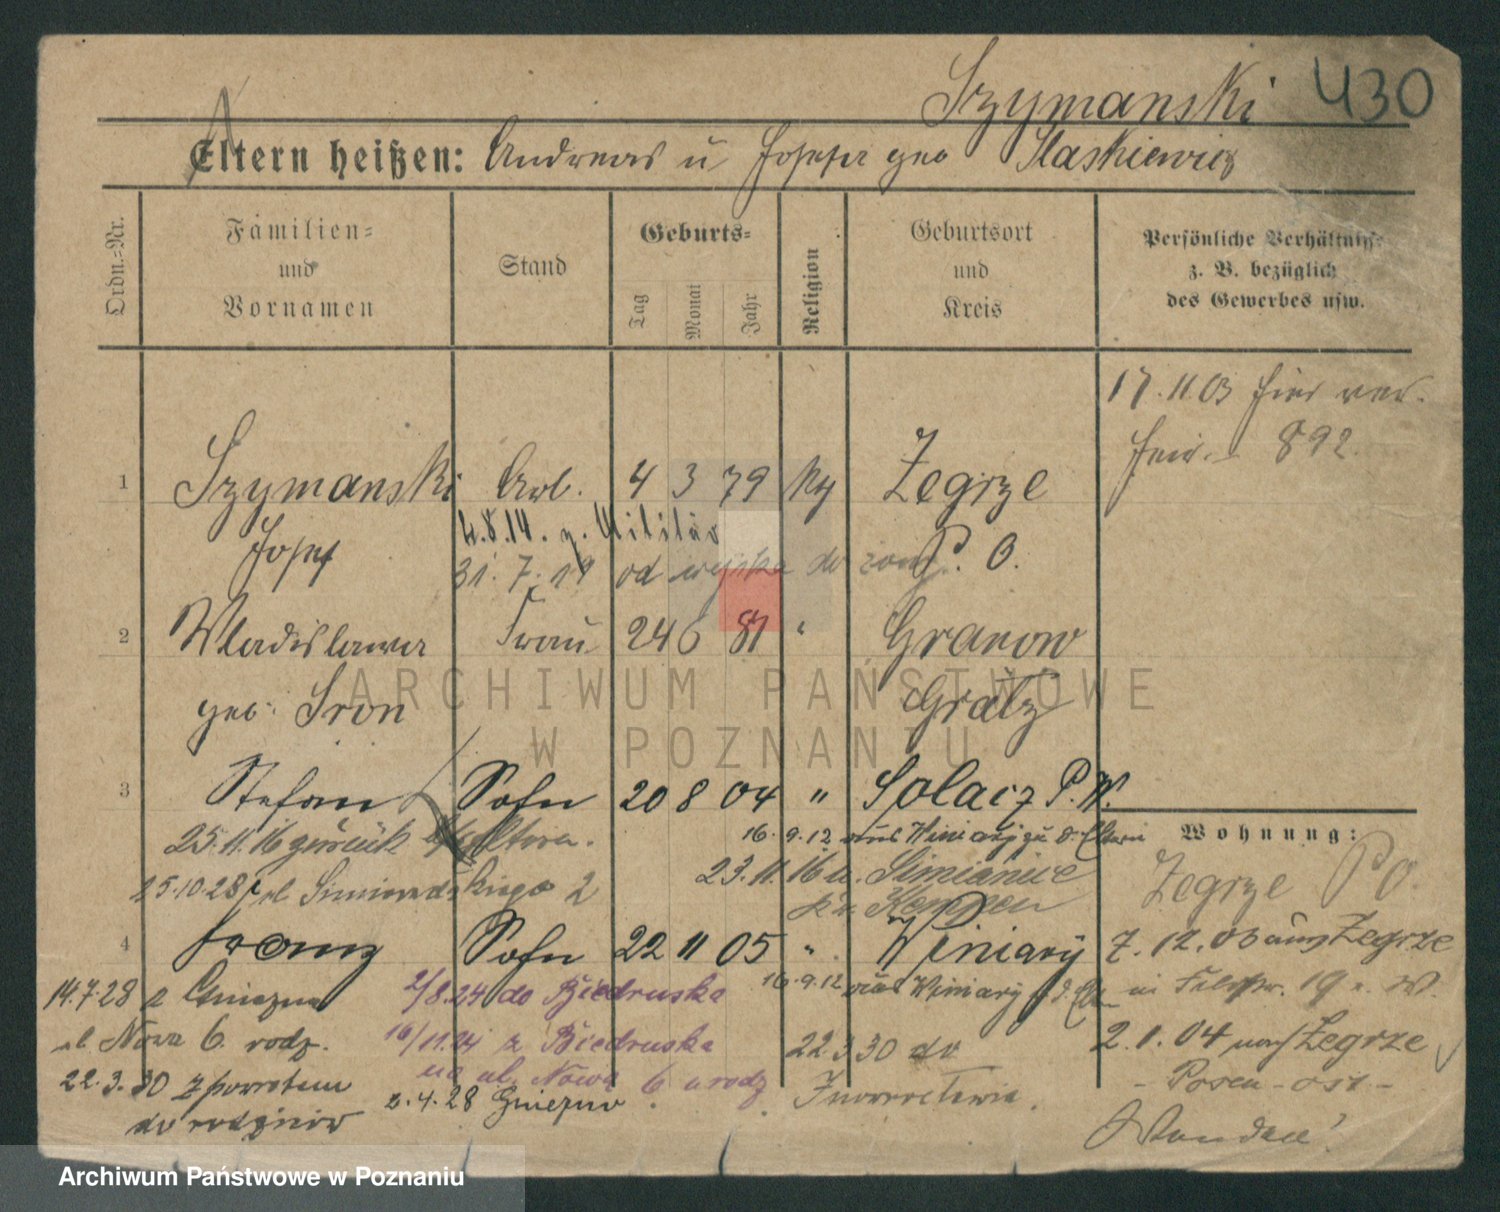 Szymanski 430
Eltern heißen: Andreas u Josefa geb Staskiewicz
Ordn.-Nr.
Familien-
und
Vornamen
Stand
Geburts-
Tag
Monat
Jahr
Religion
Geburtsort
und
Kreis
Persönliche Verhältniss-
z. B. bezüglich
des Gewerbes usw.
17.11.03 hier ver.
heir. 892.
1 Szymanski Arb. 4 3 79 Kg Zegrze
4.8.14. z. Militär
Josef P. O.
31.7.19 od wojska do
2 Wladislawa Frau 24 6 81 " Granow
geb. Sron Grätz
3 Stefan Sohn 20 8 04 " Solacz P. W.
16.9.12 aus Winiary zu d. Eltern
25.11.16 zurück Eltern.
23.11.16 n. Simianice
Kr. Kempen
25.10.28 ul 2
4 Franz Sohn 22 11 05 " Winiary
16.9.12 aus Winiary z d. Elt
14.7.28 z Gniezna
ul Nowa 6. rodz.
22.3.30 z powrotem
do rodziców
2/8.24 do Biedruska
16/11.24 z Biedruska
na ul. Nowa 6 u rodz
2.4.28 Gniezno
22.3 30 do
Inowrocławia.
Wohnung:
Zegrze P O.
7.12.03 aus Zegrze
in 19 n. W.
2.1.04 nach Zegrze
- Posen-ost -
ARCHIWUM PAŃSTWOWE
W POZNANIU
Archiwum Państwowe w Poznaniu